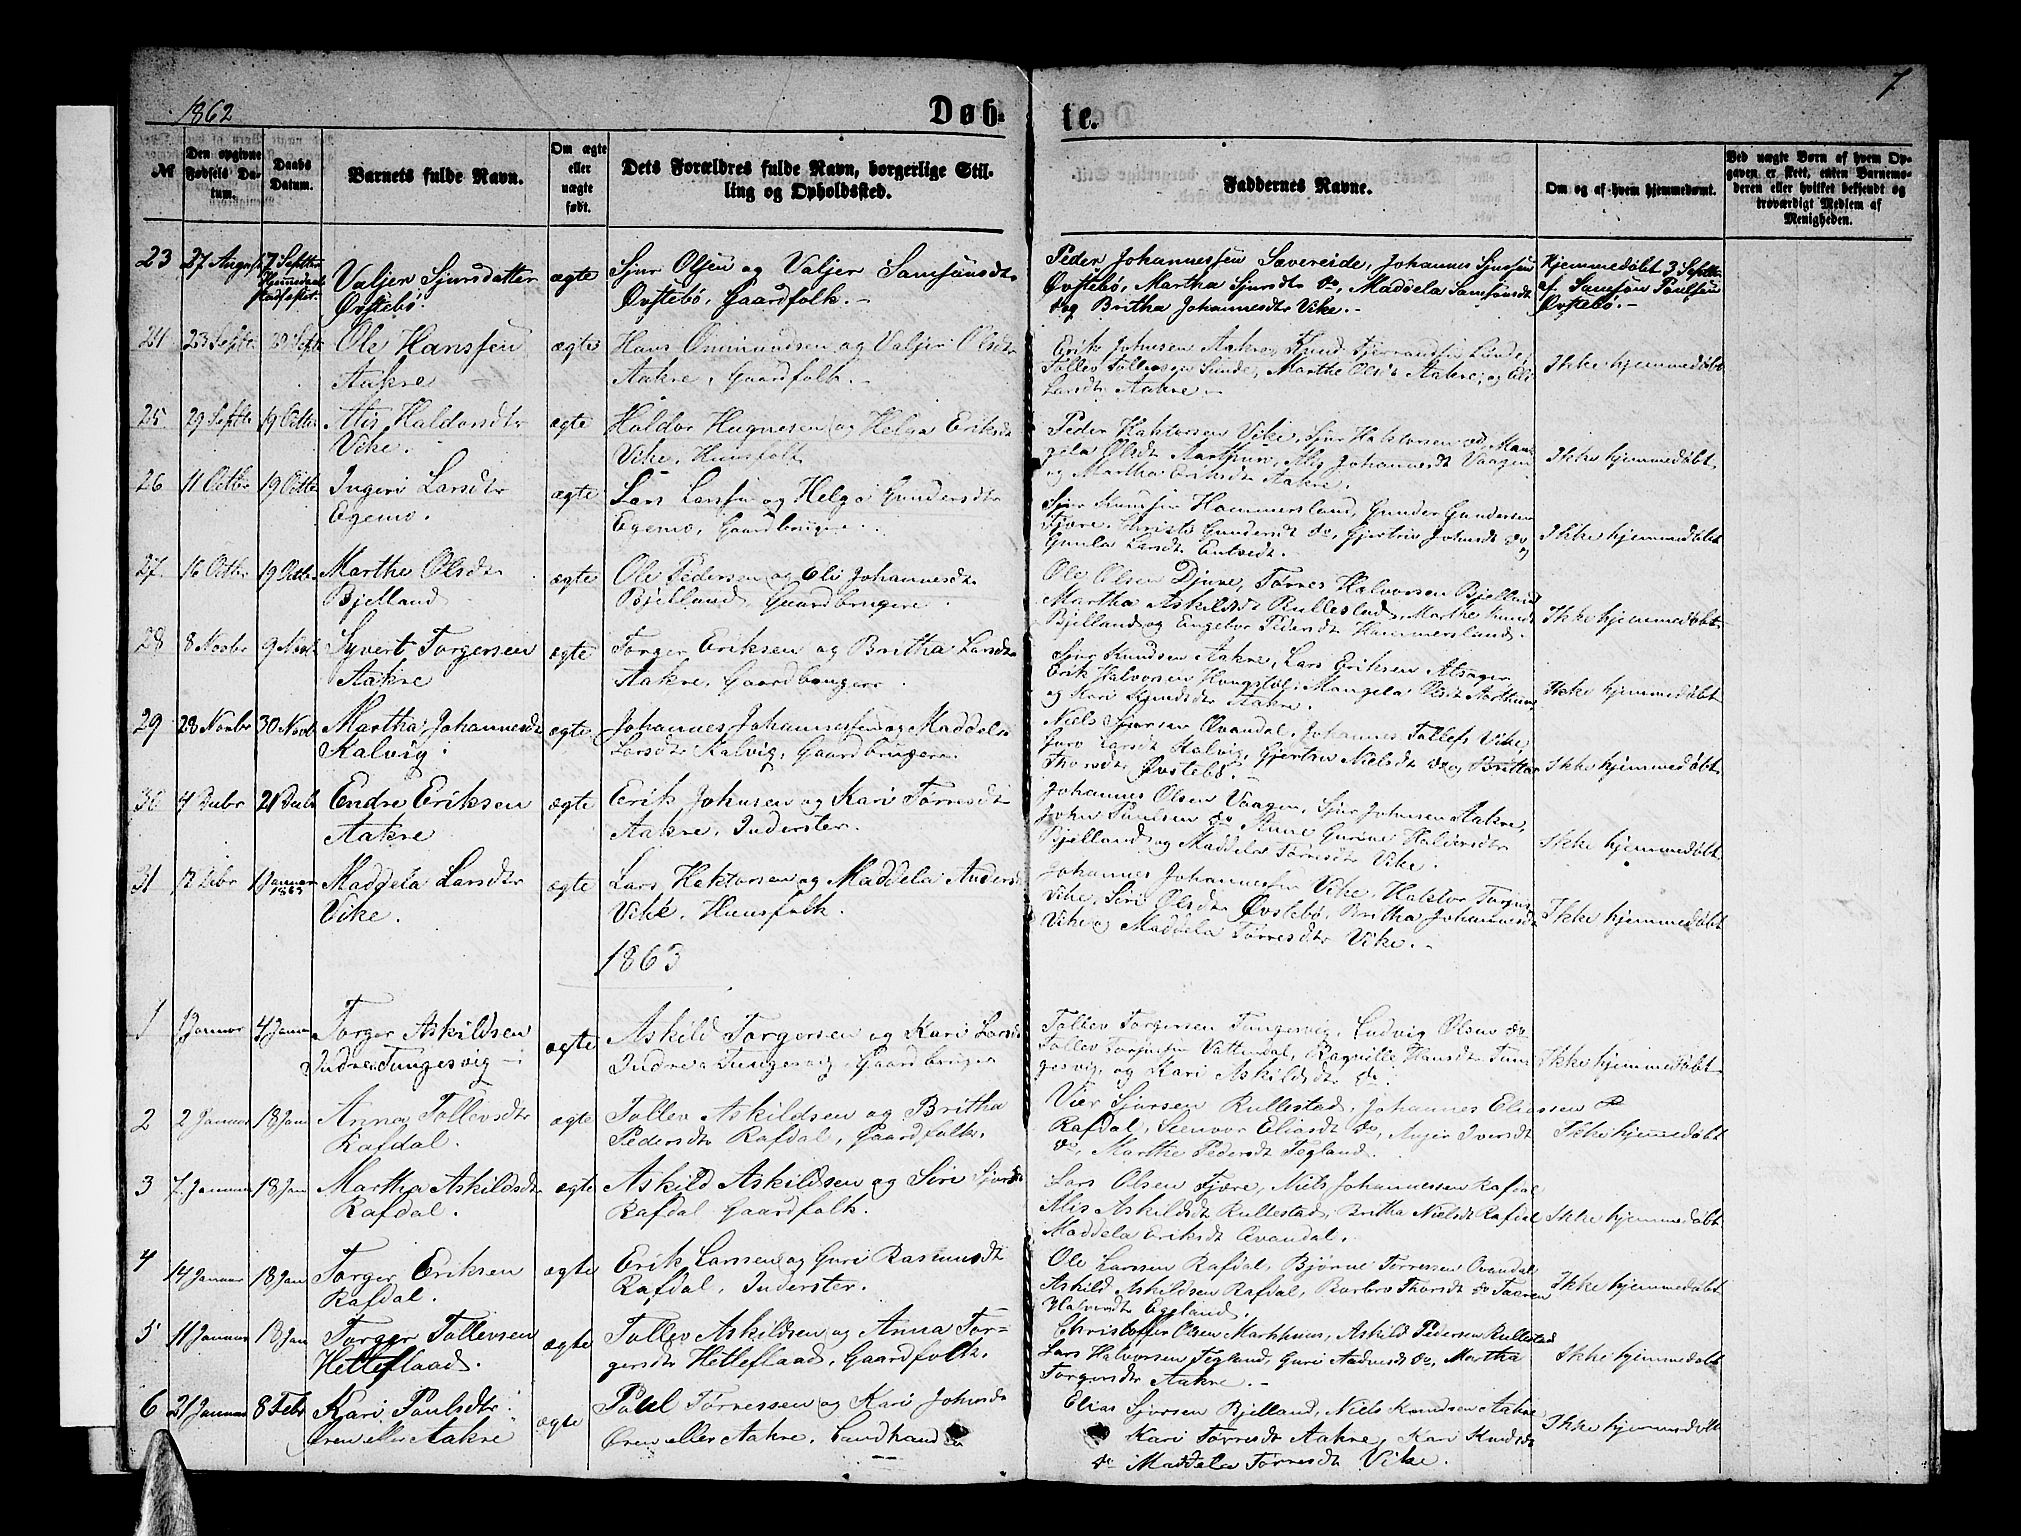 1862
Døb-
te.
7
№
Den opgivne Fødsels Datum.
Daabs Datum.
Barnets fulde Navn.
Om ægte eller uægte født.
Dets Forældres fulde Navn, borgerlige Stilling og Opholdssted.
Faddernes Navne.
Om og af hvem hjemmedøbt.
Ved uægte Børn af hvem Opgaven er skett, enten Barnemoderen eller hvilket bekjendt og troværdigt Medlem af Menigheden.
23 27 August 7 Septbr Hjemmedaab stadfæstet. Valjer Sjursdatter ægte Sjur Olsen og Valjer Samsonsdtr
Øvstebø. Øvstebø, Gaardfolk.-
Peder Johannessen Sævereide, Johannes Sjursen
Øvstebø, Martha Sjursdtr do, Maddela Samsonsdt
do og Britha Johannesdtr Vike.-
Hjemmedøbt 3 Septbr
af Samson Poulsen
Øvstebø.-
24 23 Septbr Ole Hansen ægte Hans Ommundsen og Valjer Olsdtr
Aakre Aakre, Gaardfolk.-
Erik Johnsen Aakre, Knud Lunde,
Tollef Tollefsen Sunde, Marthe Olsdt Aakre, og
Larsdt Aakre.-
Ikke hjemmedøbt
25 29 Septbr 19 Octbr Alis Haldorsdtr ægte Haldor Hugnesen og Helga Eriksdt
Vike. Vike, Huusfolk
Peder Haktorsen Vike, Sjur Halstorsen do, Man-
gela Olsdt Aarthun, Alis Johannesdt Vaagen
og Martha Eriksdt Aakre.
Ikke hjemmedøbt
26 11 Octbr 19 Octbr Ingeri Larsdtr ægte Lars Larsen og Helga Gundersdtr
Egemo. Egemo, Gaardbrugere.
Sjur Knudsen Hammersland, Gunder Gundersen
Fjære, Christi Gundersdt do, Gjertrin Johnsdt do og
Gunla Larsdt Entvedt.-
Ikke hjemmedøbt
27 16 Octbr 19 Octbr Marthe Olsdtr ægte Ole Pedersen og Oli Johannesdtr
Bjelland Bjelland, Gaardbrugere.
Ole Olsen Djuve, Tørres Halvorsen Bjelland
Martha Askildsdt Rullestad, Marthe Knudsdt
Bjelland og Engebor Pedersdt Hammersland.
Ikke hjemmedøbt
28 8 Novbr 9 Novb Syvert Torgersen ægte Torger Eriksen og Britha Larsdtr
Aakre Aakre, Gaardbrugere.
Sjur Knudsen Aakre, Lars Eriksen Alsager
Erik Halvorsen Hougstøl, Mangela Olsdt Aarthun
og Kari Knudsdtr Aakre.
Ikke hjemmedøbt
29 28 Novbr 30 Novb Martha Johannesdt ægte Johannes Johannessen og Maddela
Kalvig. Larsdtr Kalvig, Gaardbrugere.
Niels Sjursen Øvandal, Johannes Tollefs Vike,
Guro Larsdt Kalvig, Gjertrin Nielsdt do og Britha
Thorsdtr Øvstebø.-
Ikke hjemmedøbt
30 4 Decbr 21 Decb Endre Eriksen ægte Erik Johnsen og Kari Tørresdtr
Aakre Aakre, Inderster.
Johannes Olsen Vaagen, Sjur Johnsen Aakre,
John Paulsen do, Anne Gurine Haldorsdtr
Bjelland og Maddela Tørresdtr Vike.
Ikke hjemmedøbt
31 12 Decbr 1 Januar 1863 Maddela Larsdtr ægte Lars Haktorsen og Maddela Andersd
Vike. Vike, Huusfolk.
Johannes Johannessen Vike, Halstor Torgers
Vike, Siri Olsdtr Øvstebø, Britha Johannesdt
Vike og Maddela Tørresdtr Vike.-
Ikke hjemmedøbt
1863
1 1 Januar 4 Januar Torger Askildsen ægte Askild Torgersen og Kari Larsdt
Indre Tungesvig - Indre Tungesvig, Gaardbruger
Tollev Torgersen Tungesvig, Ludvig Olsen do
Tollev Torgersen Vattendal, Ragnille Hansdt Tun-
gesvig, og Kari Askildsdtr do.
Ikke hjemmedøbt
2 2 Januar 18 Jan Anna Tollevsdtr ægte Tollev Askildsen og Britha
Rafdal. Pedersdtr Rafdal, Gaardfolk.
Vier Sjursen Rullestad, Johannes Eliassen
Rafdal, Steenvor Eliasdt do, Anger Iversdt
do, Marthe Pedersdt Tegland.
Ikke hjemmedøbt
3 7 Januar 18 Jan Martha Askildsdt ægte Askild Askildsen og Siri Sjursdt
Rafdal. Rafdal Gaardfolk.
Lars Olsen Fjære, Niels Johannessen Rafdal
Alis Askildsdt Rullestad, Britha Nielsdt Rafdal
Maddela Eriksdt Øvandal.
Ikke hjemmedøbt
4 14 Januar 18 Jan Torger Eriksen ægte Erik Larsen og Guri Rasmusdt
Rafdal. Rafdal, Inderster.
Ole Larsen Rafdal, Bjørne Tørressen Øvandal
Askild Askildsen Rafdal, Barbro Thorsdt do
Halvorsdtr Egeland.
Ikke hjemmedøbt
5 11 Januar 18 Jan Torger Tollevsen ægte Tollev Askildsen og Anna Tor-
Hetleflaad. gersdtr Hetleflaad, Gaardfolk.
Christoffer Olsen Markhuus, Askild Pedersen Rullestad
Lars Halvorsen Tegland, Guri Aadnesdt do, Martha
Torgersdtr Aakre.-
Ikke hjemmedøbt
6 21 Januar 8 Febr Kari Poulsdtr ægte Poul Tørressen og Kari Johnsdt
Øren eller Aakre Øren eller Aakre,
Elias Sjursen Bjelland, Niels Knudsen Aakre
Kari Tørresdt Aakre, Kari Knudsdt
do Maddela Tørresdt Vike.
Ikke hjemmedøbt